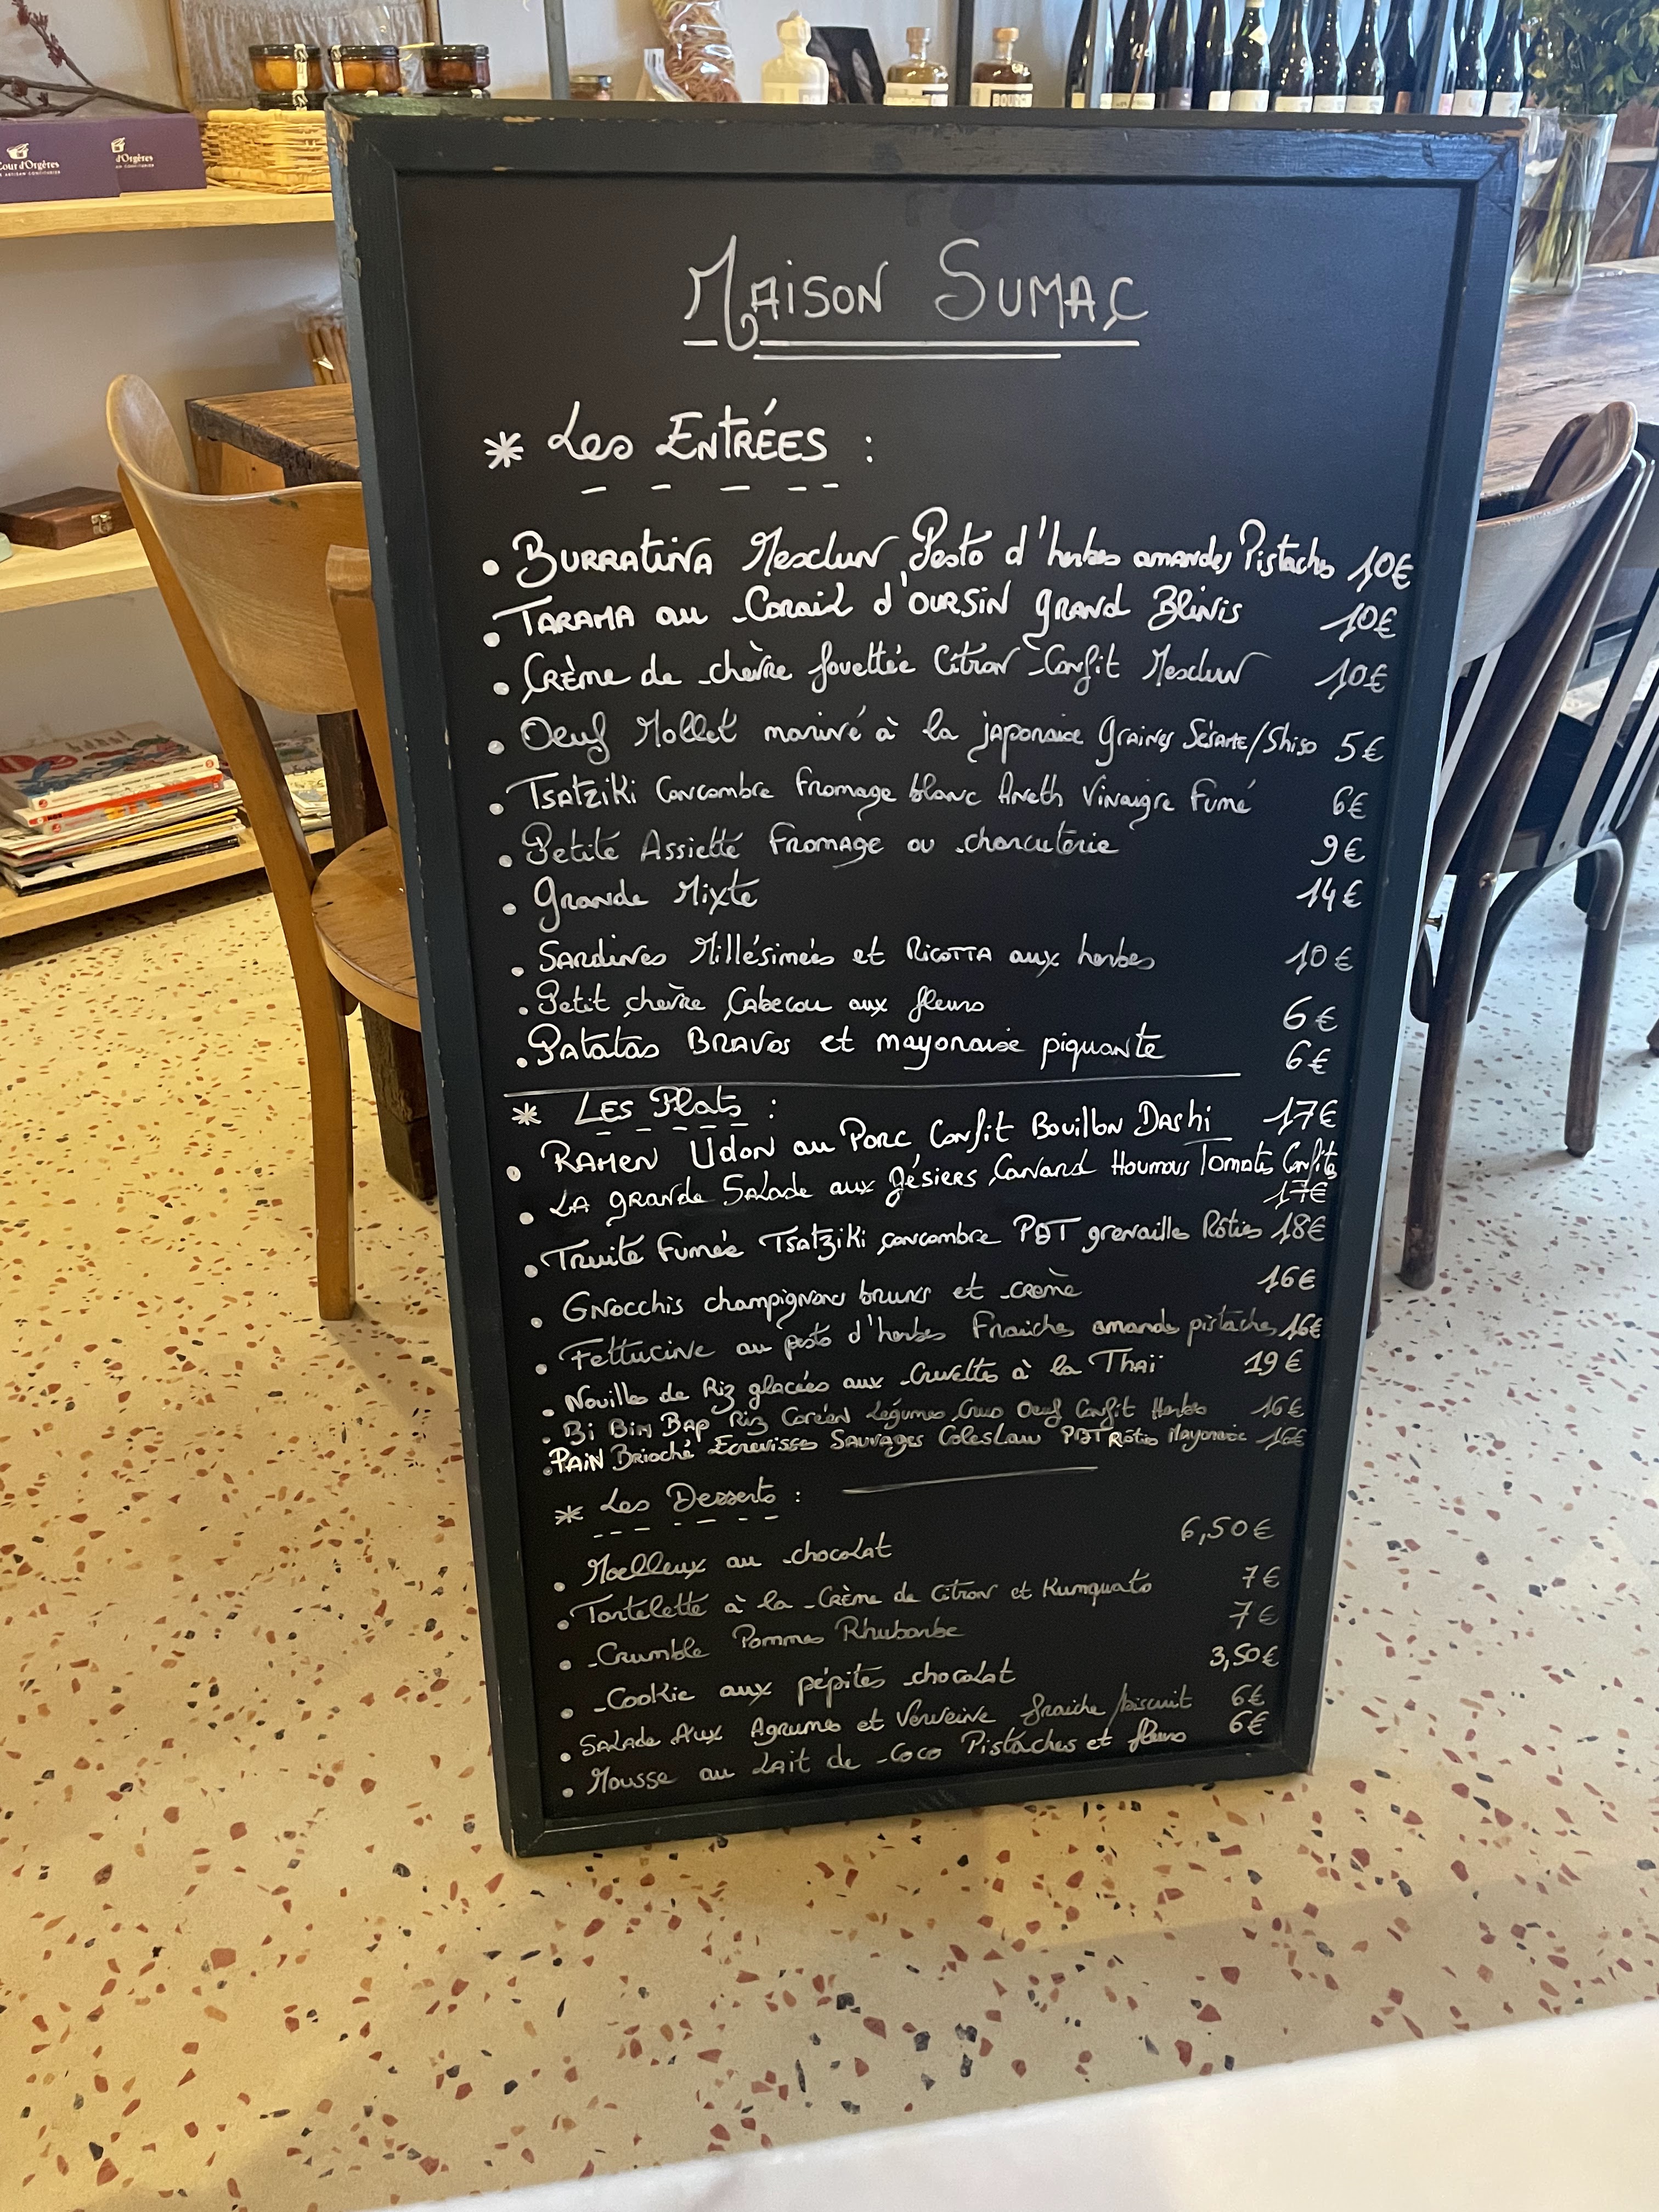 Cour d'Orgères
ARTISAN CONFITURIER
d'Orgères
MAISON SUMAC
* Les ENTRÉES :
• BURRATINA Mesclun Pesto d'herbes amandes Pistaches 10€
• TARAMA au Corail d'OURSIN grand Blinis 10€
• CRÈME de chèvre fouettée Citron Confit Mesclun 10€
• Oeuf Mollet mariné à la japonaise Graines Sésame/Shiso 5€
• Tsatziki Concombre Fromage blanc Aneth Vinaigre Fumé 6€
• Petite Assiette Fromage ou charcuterie 9€
• Grande Mixte 14€
• Sardines Millésimées et RICOTTA aux herbes 10€
• Petit chèvre Cabecou aux fleurs 6€
• Patatas BRAVAS et mayonaise piquante 6€
* Les Plats :
• RAMEN Udon au Porc Confit Bouillon Dashi 17€
• LA grande Salade aux gésiers Canard Houmous Tomates Confites
17€
• Truite Fumée Tsatziki concombre PDT grenailles Rôties 18€
• Gnocchis champignons bruns et crème 16€
• Fettucine au pesto d'herbes Fraiches amande pistaches 16€
• Nouilles de Riz glacées aux Crevettes à la Thaï 19€
• Bi Bim Bap Riz Coréen Légumes Crus Oeuf Confit Herbes 16€
• PAIN Brioché Ecrevisses Sauvages Coleslaw PDT Rôties Mayonaise 16€
* Les Desserts :
• Moelleux au chocolat 6,50€
• Tartelette à la Crème de Citron et Kumquats 7€
• Crumble Pommes Rhubarbe 7€
• Cookie aux pépites chocolat 3,50€
• Salade Aux Agrumes et Verveine fraiche/biscuit 6€
• Mousse au Lait de Coco Pistaches et fleurs 6€